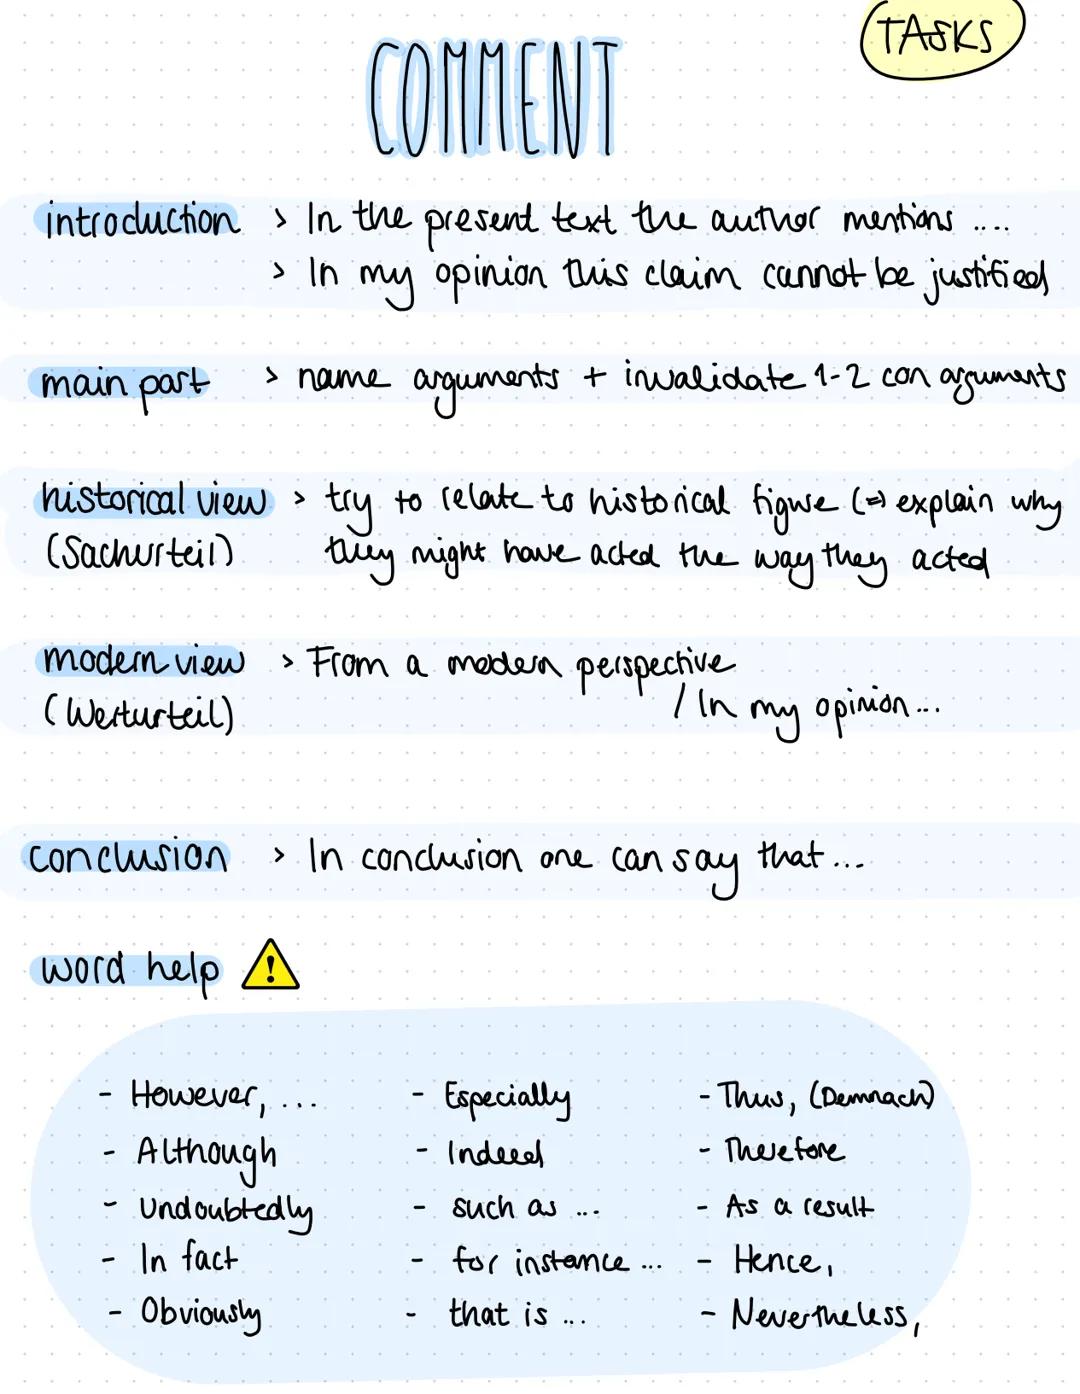 TASKS
COMMENT
introduction > In the present text the author mentions ....
> In my opinion this claim cannot be justified
main part > name arguments + invalidate 1-2 con arguments
historical view > try to relate to historical figure (=) explain why
(Sachurteil) they might have acted the way they acted
modern view > From a modern perspective
(Werturteil) / In my opinion ...
conclusion > In conclusion one can say that ...
word help
- However, ... - Especially - Thus, (Demnach)
- Although - Indeed - Therefore
- Undoubtedly - such as ... - As a result
- In fact - for instance ... - Hence,
- Obviously - that is ... - Nevertheless,